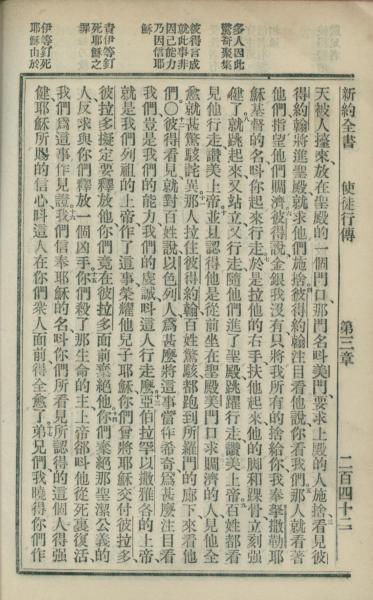 新約全書 使徒行傳 第三章 二百四十二
天被人擡來放在聖殿的一個門口那門名叫美門要求上殿的人施捨看見彼
得約翰將進聖殿就求他們施捨彼得約翰注目看他說你看我們那人就看著
他們指望他們賙濟彼得說金銀我沒有只將我所有的捨給你我奉拏撒勒耶
穌基督的名叫你起來行走於是拉他的右手扶他起來他的脚和踝骨立刻强
健了就跳起來又站立又行走隨他們進了聖殿跳躍行走讚美上帝百姓都看
見他行走讚美上帝並且認得他是從前坐在聖殿美門口求賙濟的人見他全
愈就甚驚駭詫異那人拉住彼得約翰百姓驚駭都跑到所羅門的廊下來看他
們〇彼得看見就對百姓說以色列人爲甚麽將這事當作希奇爲甚麽注目看
我們豈是我們的能力我們的虔誠叫這人行走麽亞伯拉罕以撒雅各的上帝
就是我們列祖的上帝作了這事榮耀他兒子耶穌你們曾將耶穌交付彼拉多
彼拉多擬定要釋放他你們竟在彼拉多面前棄絕他你們棄絕那聖潔公義的
人反求與你們釋放一個凶手你們殺了那生命的主上帝卻叫他從死裏復活
我們爲這事作見證我們信奉耶穌的名叫你們所看見所認得的這個人得强
健耶穌所賜的信心叫這人在你們衆人面前得全愈了弟兄們我曉得你們作
多人因此
驚奇聚集
彼得言成
就此事非
因己能力
乃因信耶
穌
責伊等釘
死耶穌之
罪
伊等釘死
耶穌由於